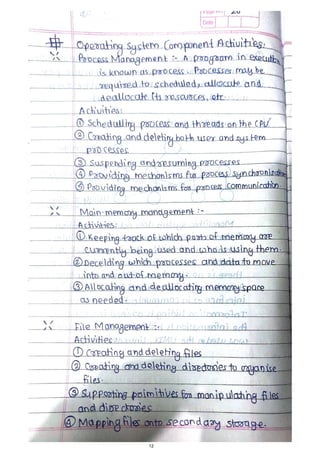 Page No. 20
Date
Operating System Component Activities.
Process Management :- A program in execution
is known as process. Processes may be
required to scheduled, allocate and
deallocate its resources, etc
Activities:
① Scheduling process and threads on the CPU
② Creating and deleting both user and system
processes
③ Suspending and resuming processes
④ Providing mechanisms for process synchronization
⑤ Providing mechanisms for process communication
Main-memory management :-
Activities:
① Keeping track of which parts of memory are
currently being used and who is using them.
② Deceiding which processes and data to move
into and out of memory.
③ Allocating and deallocating memory space
as needed.
File Management :-
Activities
① Creating and deleting files
② Creating and deleting directories to organise
files.
③ Supporting primitives for manipulating files
and directories
④ Mapping files onto secondary storage.
12